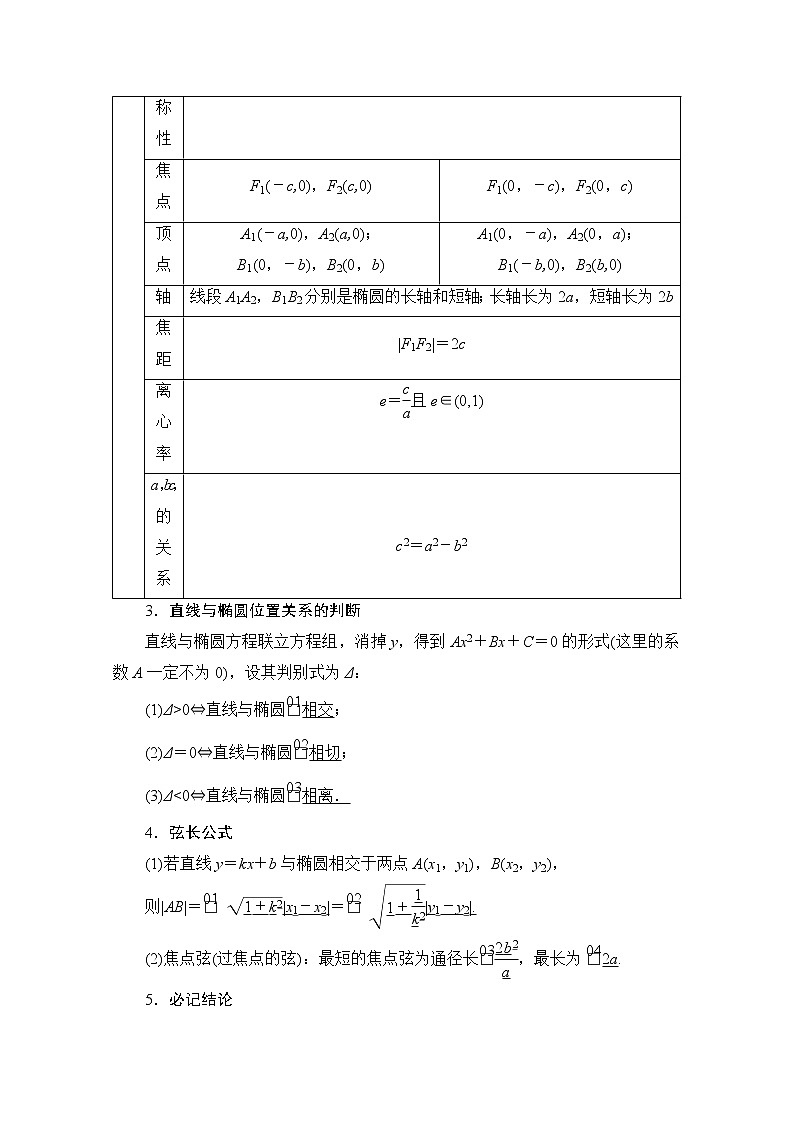 称
性
焦
点
F₁(-c,0)，F₂(c,0)
F₁(0，-c)，F₂(0，c)
顶
点
A₁(-a,0)，A₂(a,0)；
B₁(0，-b)，B₂(0，b)
A₁(0，-a)，A₂(0，a)；
B₁(-b,0)，B₂(b,0)
轴
线段A₁A₂，B₁B₂分别是椭圆的长轴和短轴；长轴长为2a，短轴长为2b
焦
距
|F₁F₂|＝2c
离
心
率
e＝c/a且e∈(0,1)
a，b，c
的
关
系
c²＝a²－b²
3．直线与椭圆位置关系的判断
直线与椭圆方程联立方程组，消掉y，得到Ax²＋Bx＋C＝0的形式(这里的系
数A一定不为0)，设其判别式为Δ：
(1)Δ>0⇔直线与椭圆□01相交；
(2)Δ＝0⇔直线与椭圆□02相切；
(3)Δ<0⇔直线与椭圆□03相离．
4．弦长公式
(1)若直线y＝kx＋b与椭圆相交于两点A(x₁，y₁)，B(x₂，y₂)，
则|AB|＝□01 √(1＋k²)|x₁－x₂|＝□02 √(1＋1/k²)|y₁－y₂|.
(2)焦点弦(过焦点的弦)：最短的焦点弦为通径长□03 2b²/a，最长为□04 2a.
5．必记结论